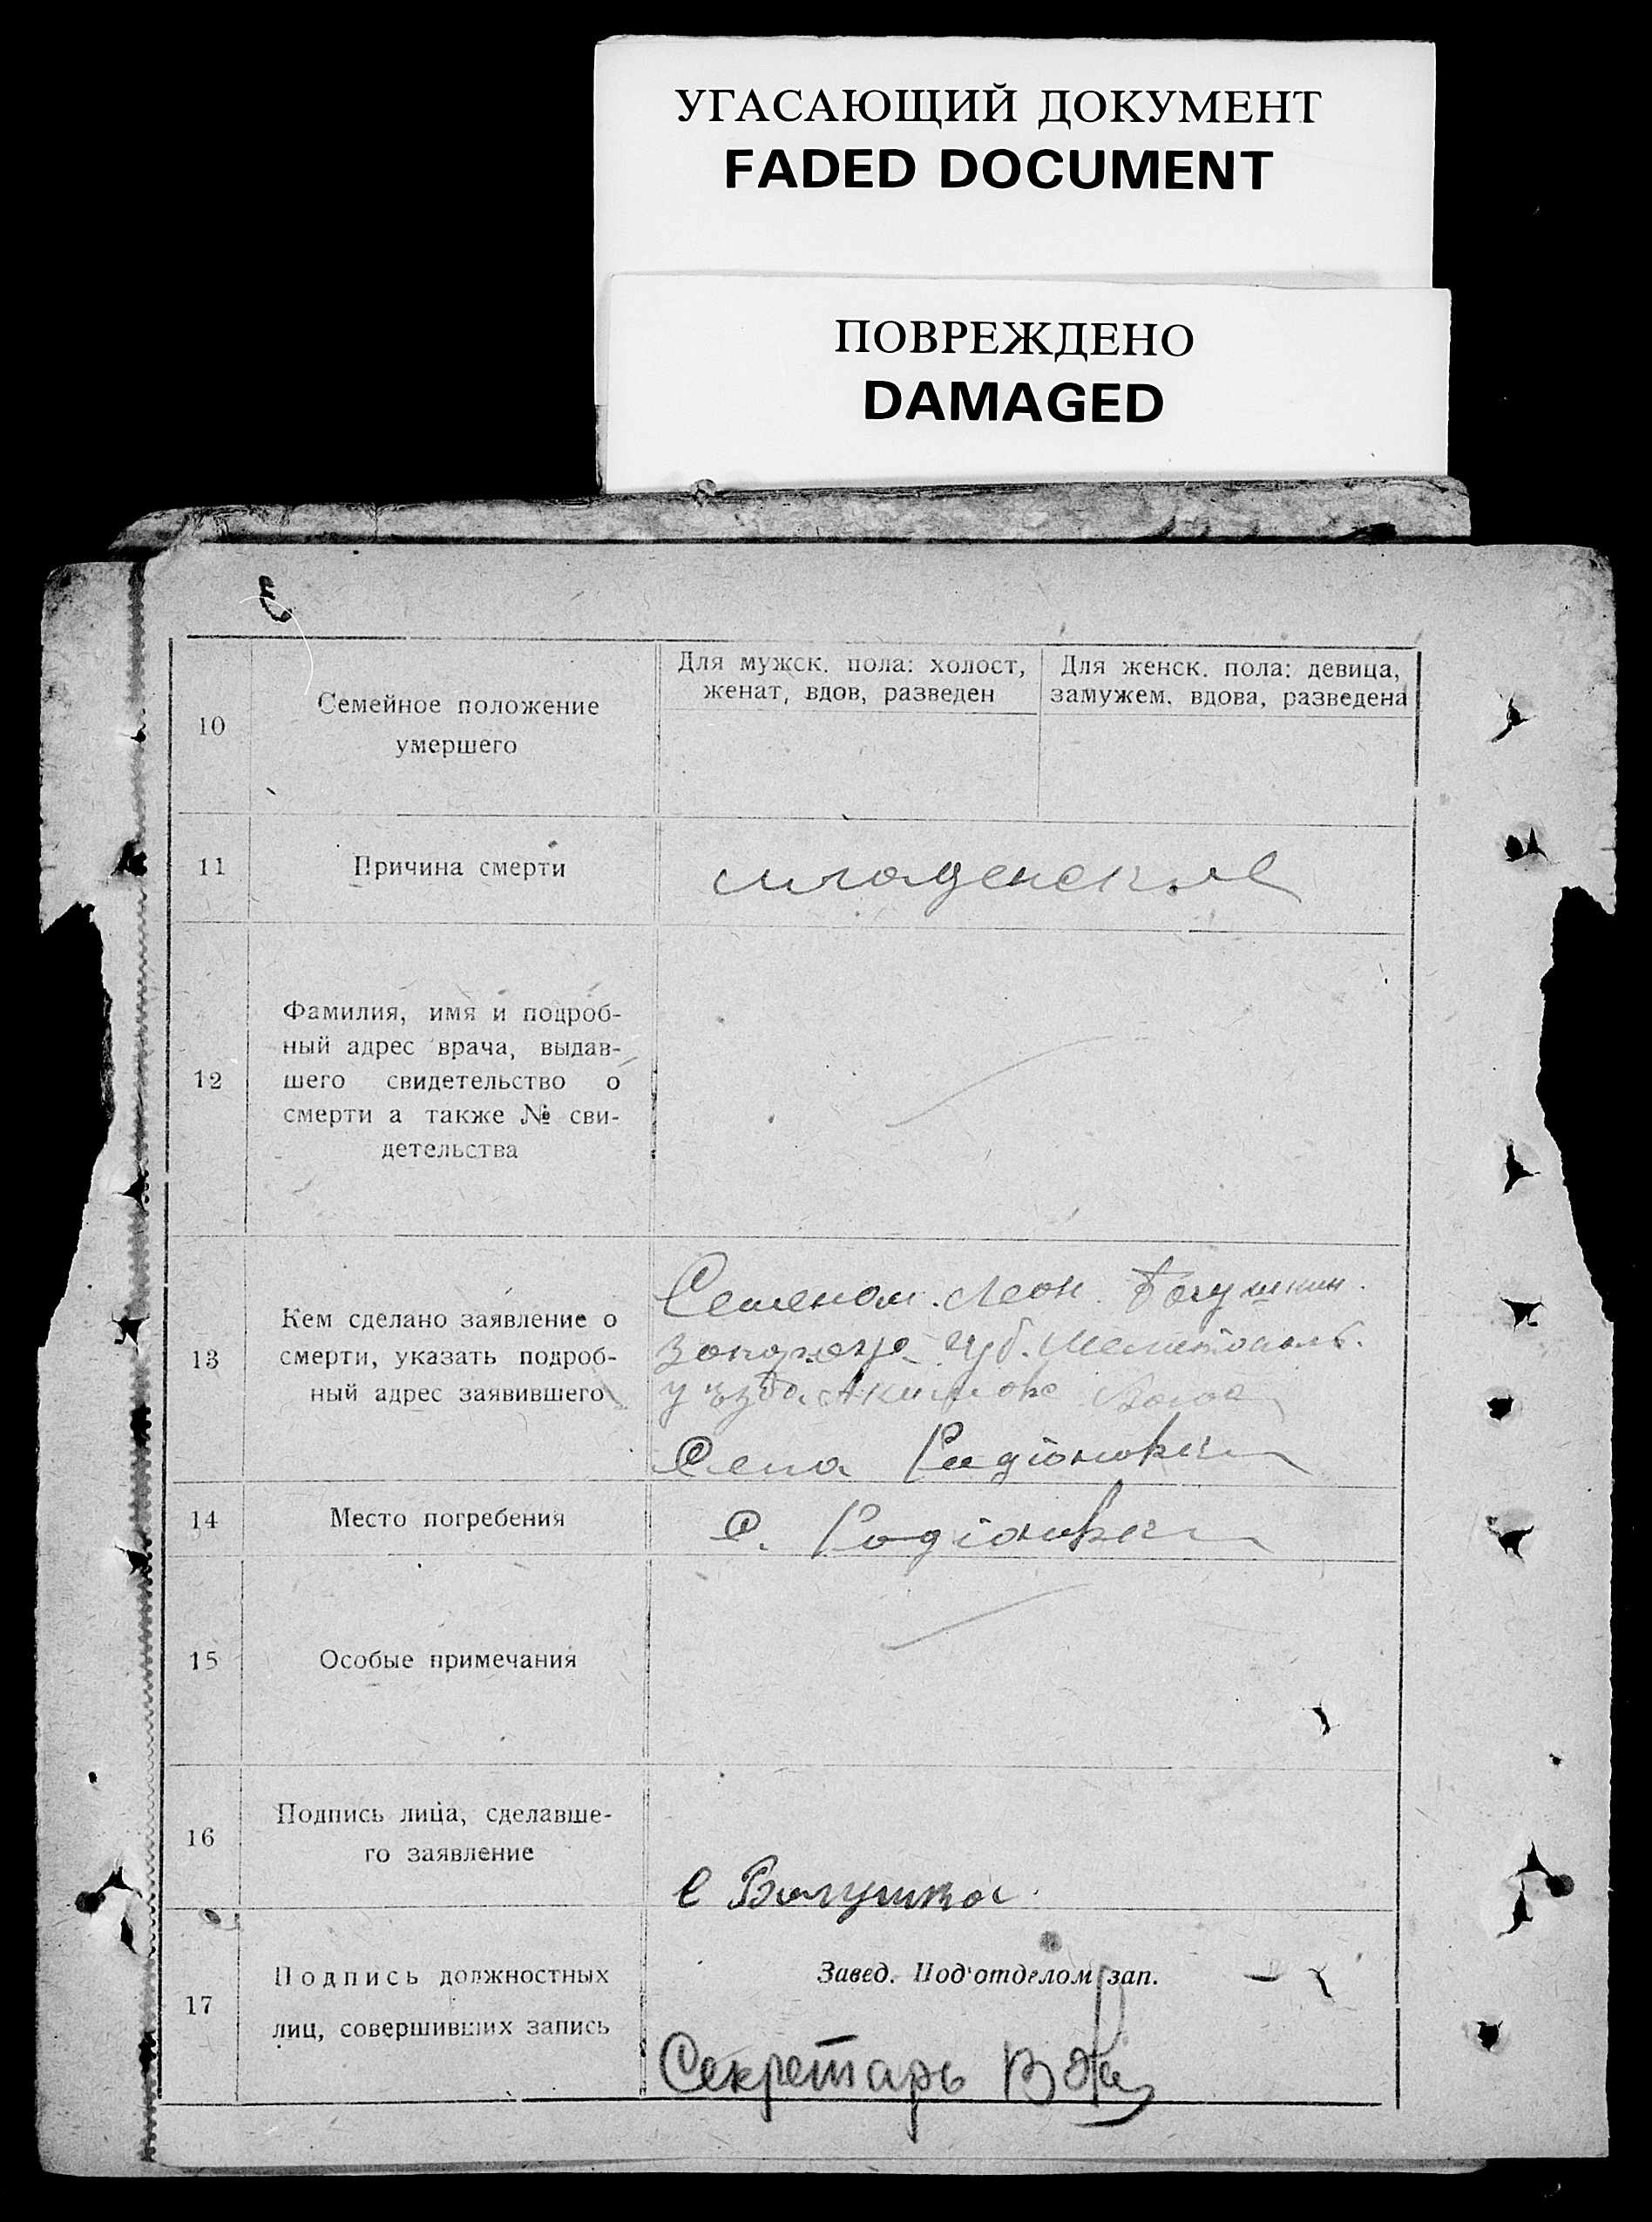 УГАСАЮЩИЙ ДОКУМЕНТ
FADED DOCUMENT
ПОВРЕЖДЕНО
DAMAGED
10
Семейное положение
умершего
Для мужск. пола: холост,
женат, вдов, разведен
Для женск. пола: девица,
замужем, вдова, разведена
11
Причина смерти
младенская
12
Фамилия, имя и подроб-
ный адрес врача, выдав-
шего свидетельство о
смерти а также № сви-
детельства
13
Кем сделано заявление о
смерти, указать подроб-
ный адрес заявившего
Семеном Леон.
губ. Мелитополь.
уъзда Акимов
Села Радіоновки
14
Место погребения
С. Родіоновки
15
Особые примечания
16
Подпись лица, сделавше-
го заявление
17
Подпись должностных
лиц, совершивших запись
Завед. Под'отделом зап.
Секретарь